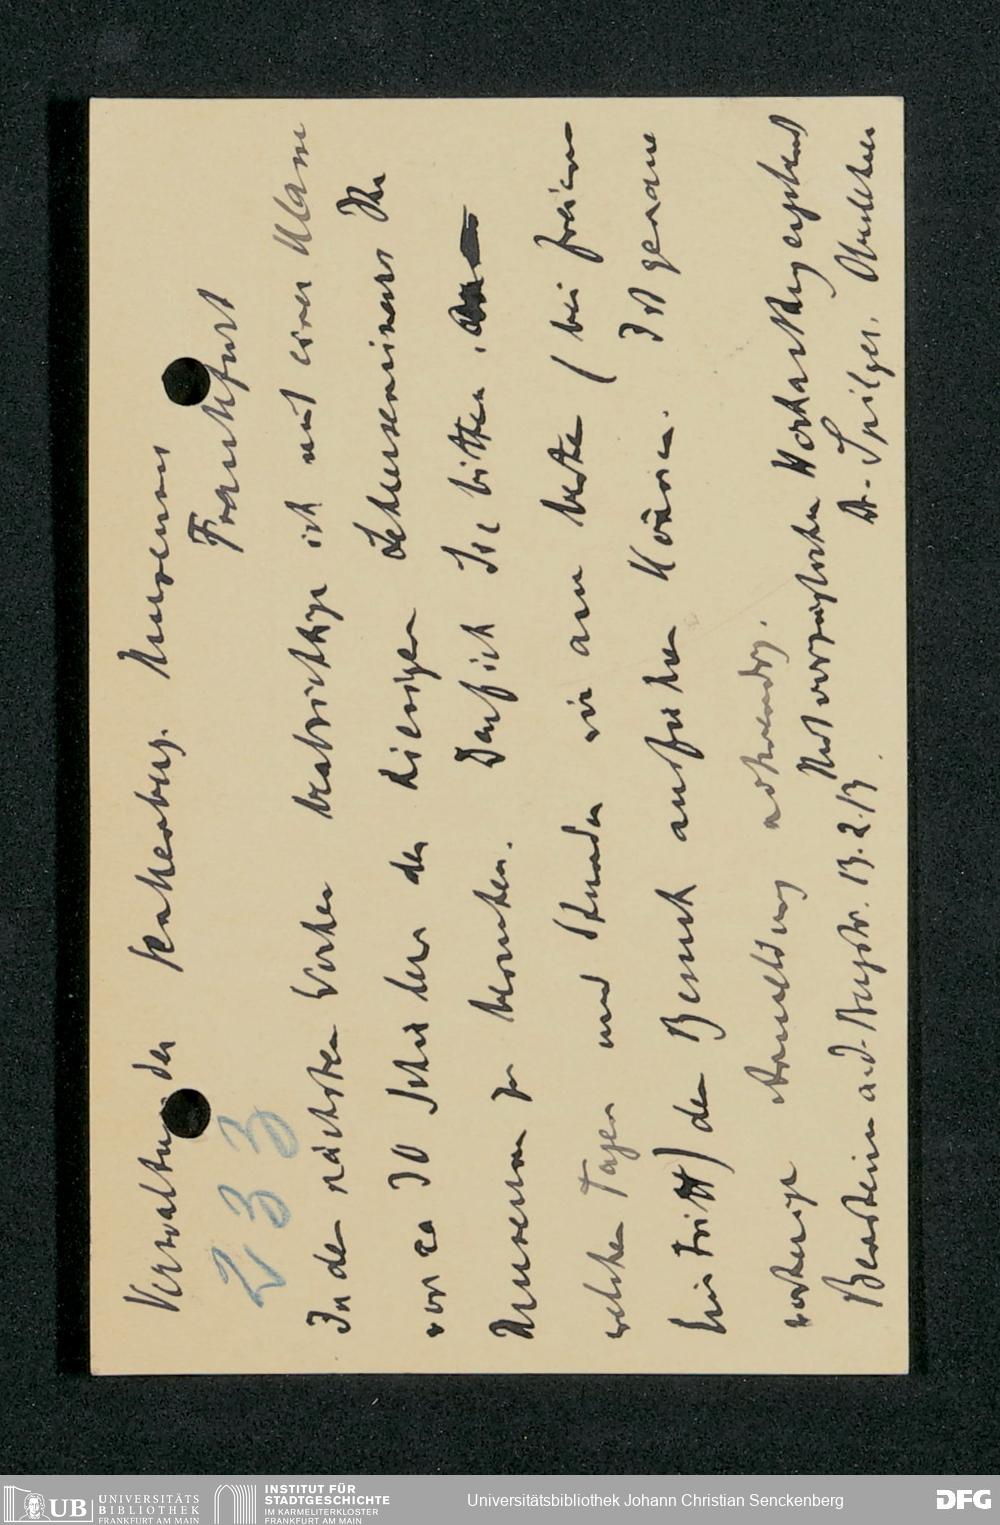 Verwaltung des Senckenberg. Museums
Frankfurt
233
In den nächsten Wochen beabsichtige ich mit einer Klasse
von ca 30 Schülern des hiesigen Lehrerseminars Ihr
Museum zu besuchen. Darf ich Sie bitten,
welchen Tagen und Stunden wir am besten (bei freiem
Eintritt) den Besuch ausführen können. Ist genaue
vorherige Anmeldung notwendig.
Mit vorzüglicher Hochachtung ergebenst
Bensheim a. d. Bergstr. 13.2.13. Dr. Spilger,
UB UNIVERSITÄTS
BIBLIOTHEK
FRANKFURT AM MAIN
INSTITUT FÜR
STADTGESCHICHTE
IM KARMELITERKLOSTER
FRANKFURT AM MAIN
Universitätsbibliothek Johann Christian Senckenberg
DFG